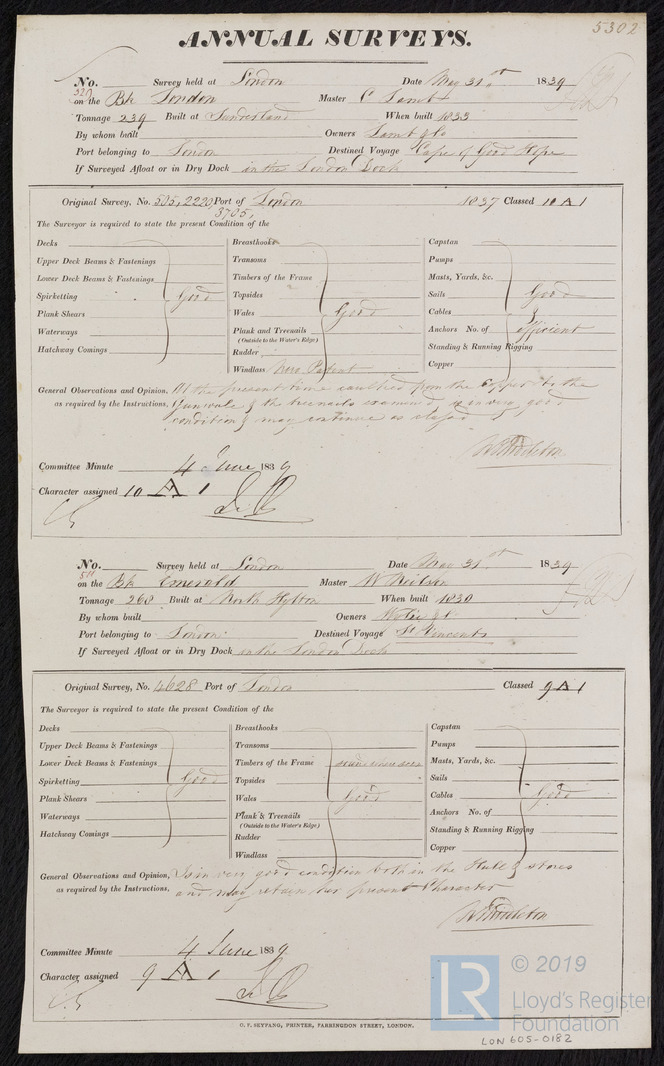 5302
ANNUAL SURVEYS.
No. Survey held at London Date May 31st 1839
527 on the Bk London Master C Lamb
Tonnage 239 Built at Sunderland When built 1833
By whom built Owners Lamb & Co
Port belonging to London Destined Voyage Cape of Good Hope
If Surveyed Afloat or in Dry Dock in the London Dock
Original Survey, No. 505, 2220, Port of London 1837 Classed 10 A 1
3705,
The Surveyor is required to state the present Condition of the
Decks Breasthooks Capstan
Upper Deck Beams & Fastenings Transoms Pumps
Lower Deck Beams & Fastenings Timbers of the Frame Masts, Yards, &c.
Spirketting Good Topsides Sails Good
Plank Shears Wales Good Cables &
Waterways Plank and Treenails Anchors No. of efficient
(Outside to the Water's Edge)
Hatchway Comings Rudder Standing & Running Rigging
Windlass New Patent Copper
General Observations and Opinion, At the present time caulked from the copper to the
as required by the Instructions, Gunwale & the treenails examined is in very good
condition & may continue as classed
W Middleton
Committee Minute 4 June 1839
Character assigned 10 A 1
No. Survey held at London Date May 31st 1839
511 on the Bk Emerald Master W Neilson
Tonnage 268 Built at North Hylton When built 1830
By whom built Owners
Port belonging to London Destined Voyage St Vincents
If Surveyed Afloat or in Dry Dock in the London Dock
Original Survey, No. 4628 Port of London Classed 9 A 1
The Surveyor is required to state the present Condition of the
Decks Breasthooks Capstan
Upper Deck Beams & Fastenings Transoms Pumps
Lower Deck Beams & Fastenings Timbers of the Frame sound where seen Masts, Yards, &c.
Spirketting Good Topsides Sails
Plank Shears Wales Good Cables Good
Waterways Plank & Treenails Anchors No. of
(Outside to the Water's Edge)
Hatchway Comings Rudder Standing & Running Rigging
Windlass Copper
General Observations and Opinion, Is in very good condition both in the Hull & stores
as required by the Instructions, and may retain her present Character
W Middleton
Committee Minute 4 June 1839
Character assigned 9 A 1
C. F. SEYFANG, PRINTER, FARRINGDON STREET, LONDON.
LR © 2019
Lloyd's Register
Foundation
LON 605-0182